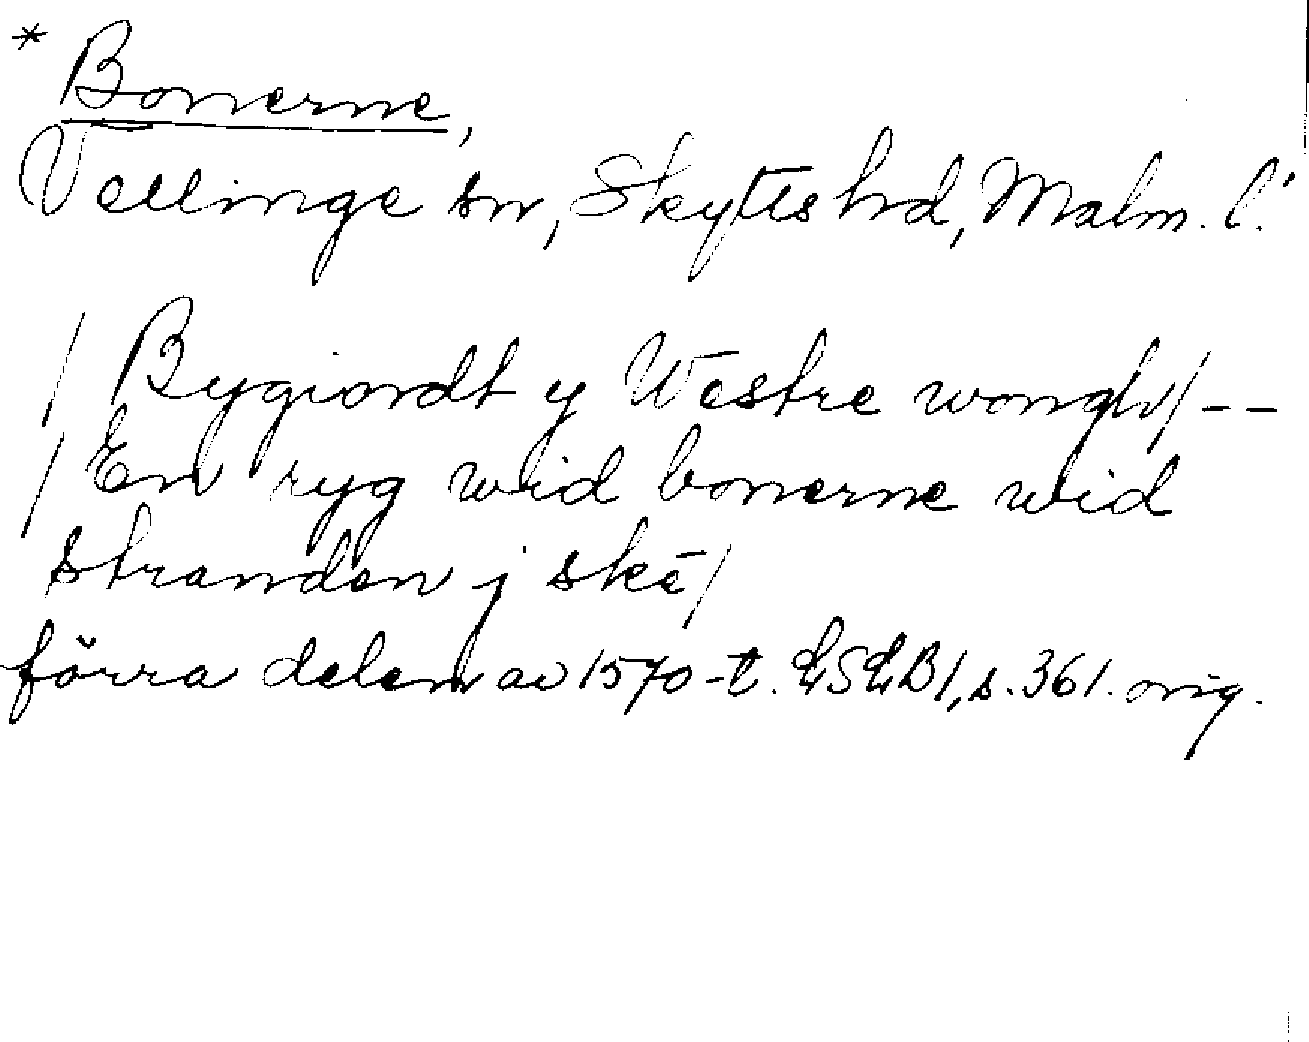 * Bonerne,
Vellinge sn, Skytts hrd, Malm. l.
/ Bygiordt y Westre wongh/ --
/ En ryg wid bonerne wid
stranden j skē/
förra delen av 1570-t. , s. 361. orig.